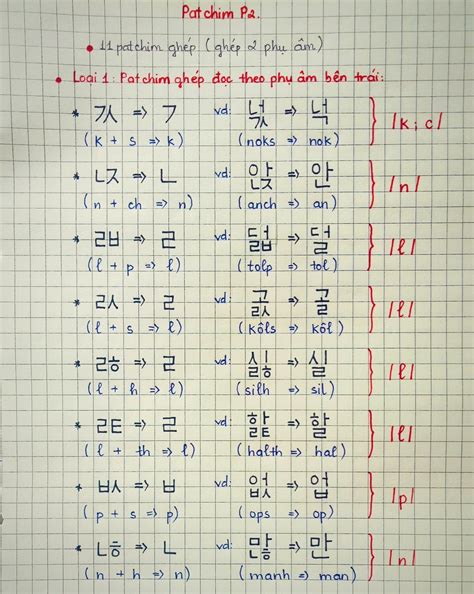 Patchim P2.
• 11 patchim ghép (ghép 2 phụ âm)
• Loại 1: Patchim ghép đọc theo phụ âm bên trái:
* ㄳ => ㄱ vd: 넋 => 넉 } /k; c/
(k + s => k) (noks => nok)
* ㄵ => ㄴ vd: 앉 => 안 } /n/
(n + ch => n) (anch => an)
* ㄼ => ㄹ vd: 덟 => 덜 } /l/
(l + p => l) (tolp => tol)
* ㄽ => ㄹ vd: 곬 => 골 } /l/
(l + s => l) (kôls => kôl)
* ㅀ => ㄹ vd: 싫 => 실 } /l/
(l + h => l) (silh => sil)
* ㄾ => ㄹ vd: 핥 => 할 } /l/
(l + th => l) (halth => hal)
* ㅄ => ㅂ vd: 없 => 업 } /p/
(p + s => p) (ops => op)
* ㄶ => ㄴ vd: 많 => 만 } /n/
(n + h => n) (manh => man)